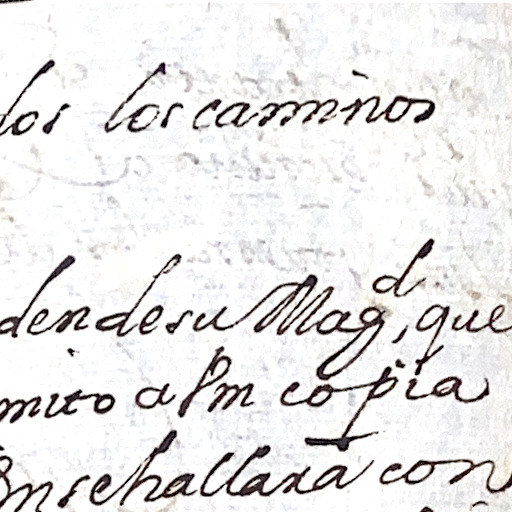 los los caminos
den de su Mag^d, que
mito a Vm copia
Vm se hallara con